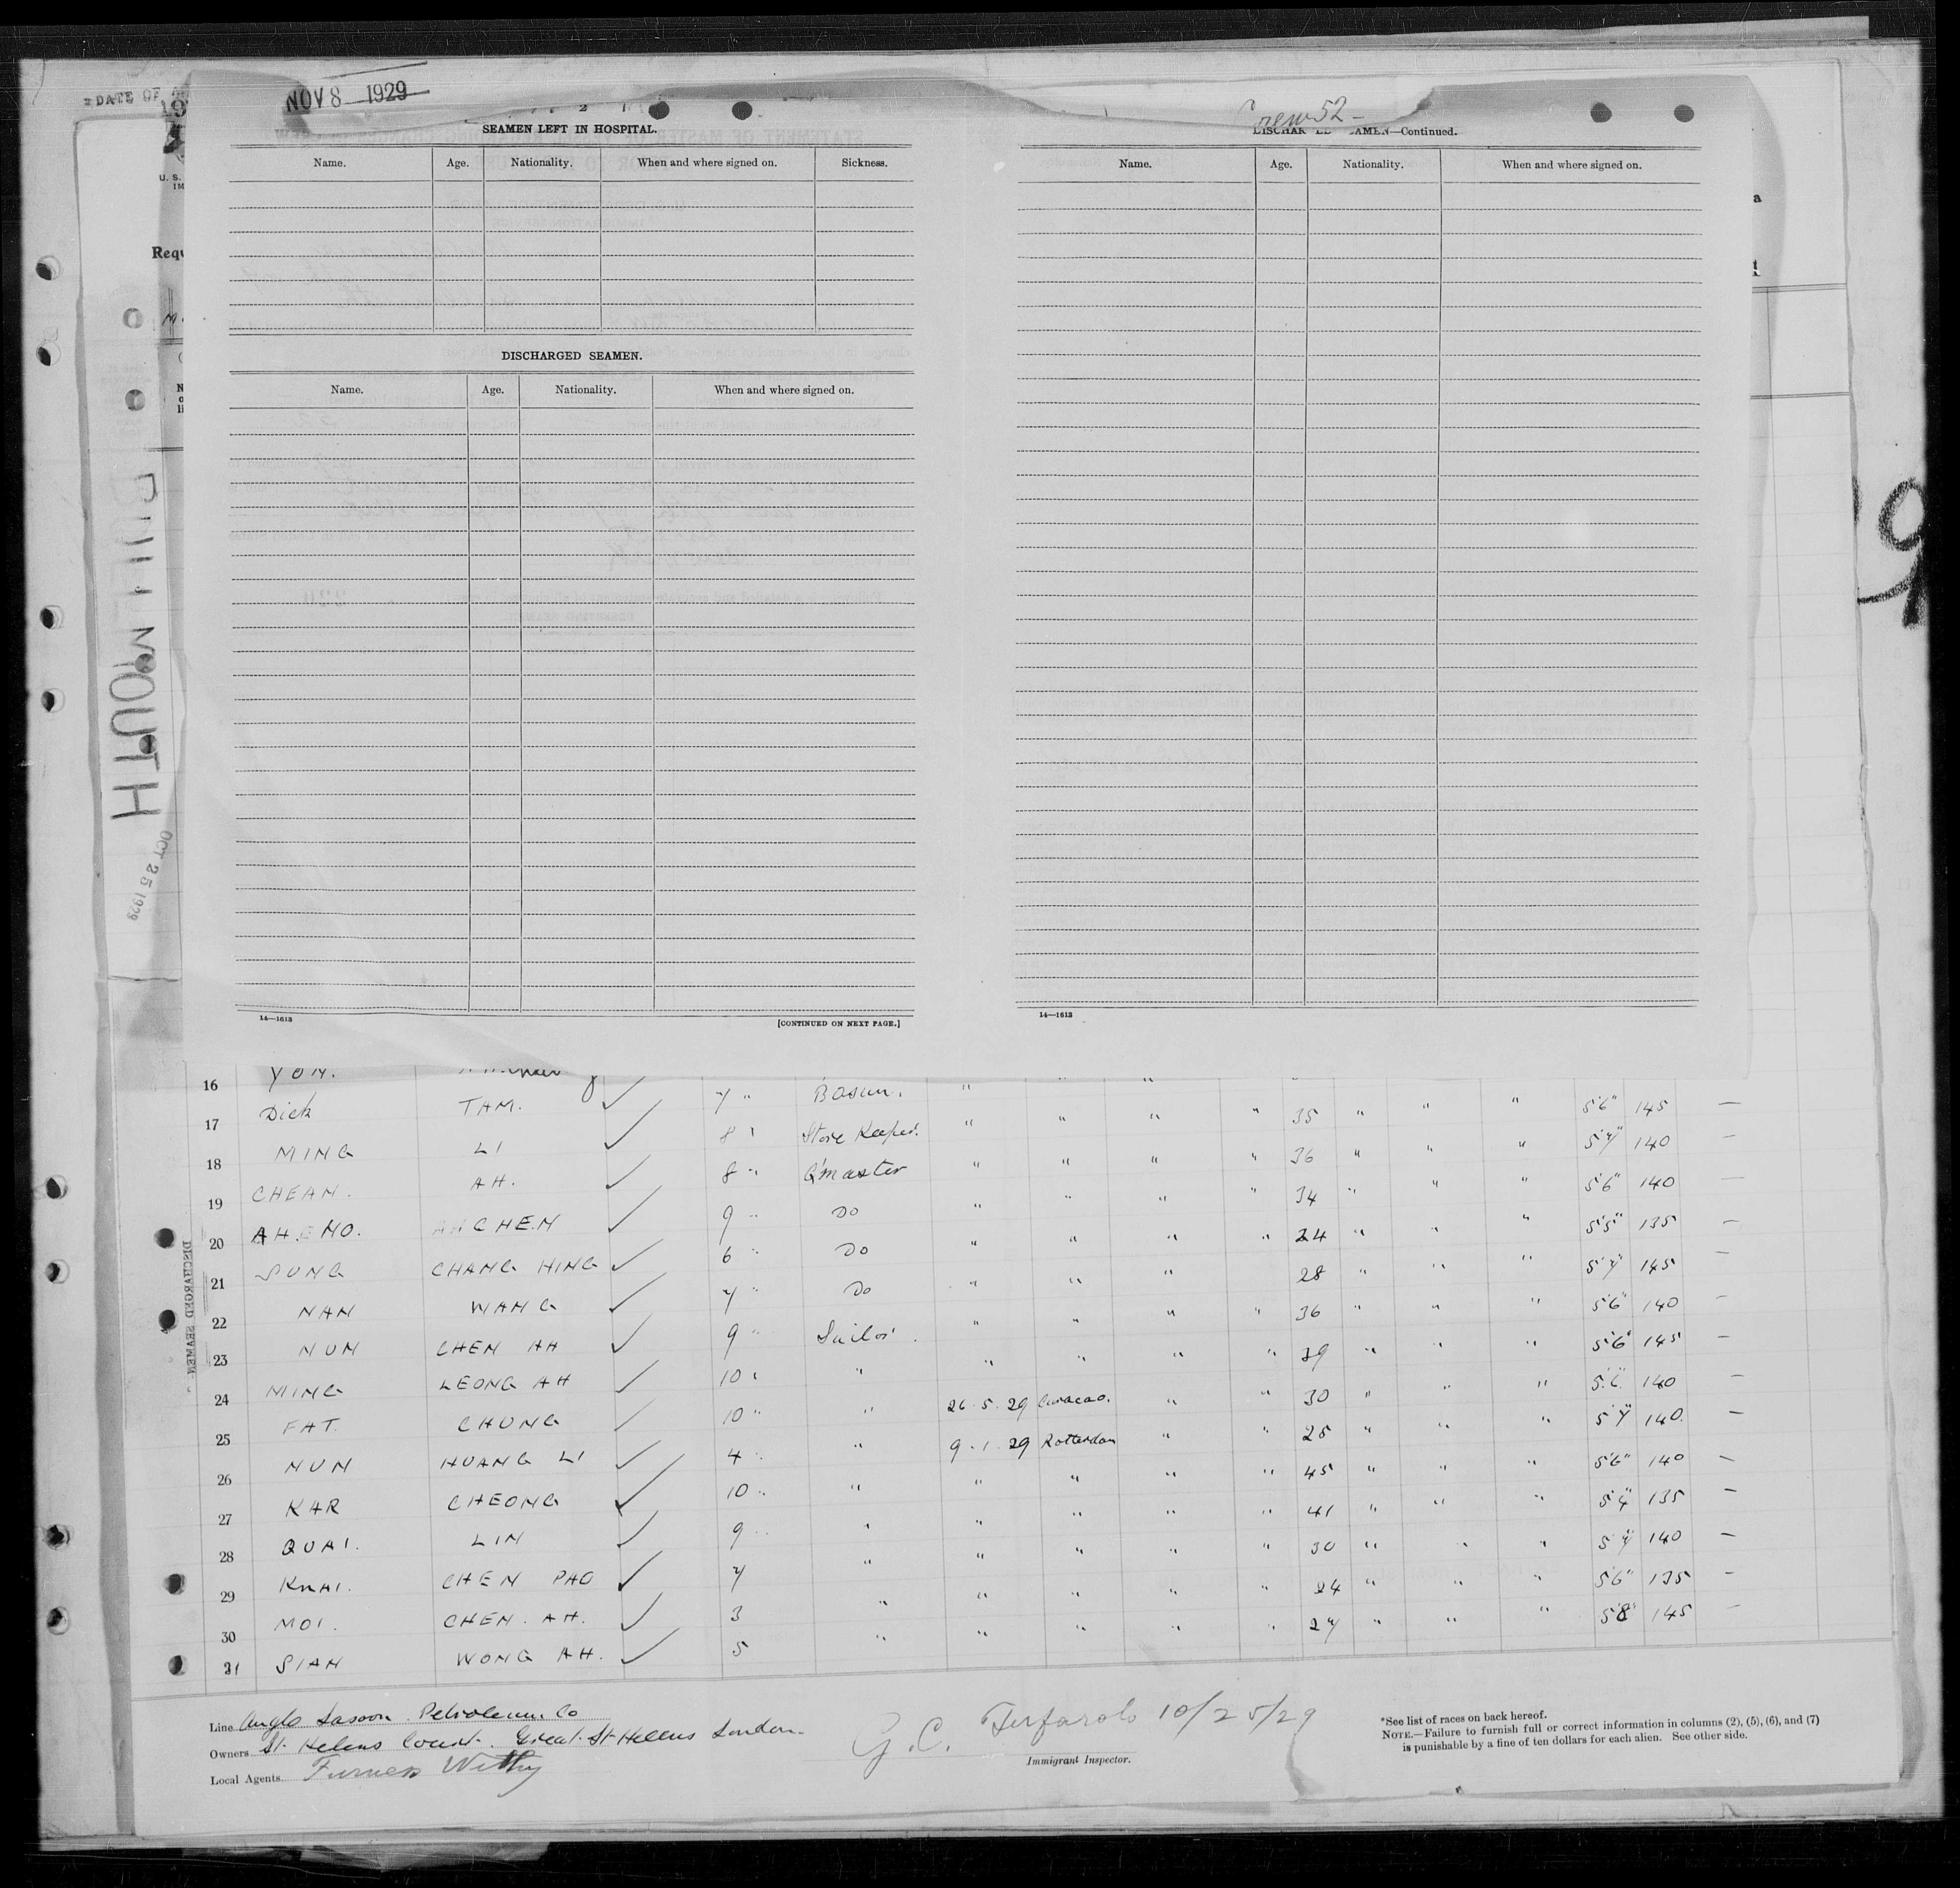 DATE OF
NOV 8 1929
SEAMEN LEFT IN HOSPITAL.
Name. Age. Nationality. When and where signed on. Sickness.
DISCHARGED SEAMEN.
Name. Age. Nationality. When and where signed on.
14—1613 [CONTINUED ON NEXT PAGE.]
Crew 52 -
AMEN—Continued.
Name. Age. Nationality. When and where signed on.
14—1613
U. S.
IM
MOUTH
OCT 25 1929
DISCHARGED SEAMEN
16 YON.
17 Dick TAM. ✓ 7 " Bosun. " " " " 35 " " " 5'6" 145 —
18 MING LI ✓ 8 " Store Keeper. " " " " 36 " " " 5'7" 140 —
19 CHEAN. AH. ✓ 8 " Q'master " " " " 34 " " " 5'6" 140 —
20 AH HO. CHEN ✓ 9 " Do " " " " 24 " " " 5'5" 135 —
21 SUNG CHANG HING ✓ 6 " Do " " " " 28 " " " 5'7" 145 —
22 NAN WANG ✓ 7 " Do " " " " 36 " " " 5'6" 140 —
23 NUN CHEN AH ✓ 9 " Sailor. " " " " 39 " " " 5'6" 145 —
24 MING LEONG AH ✓ 10 " " " " " " 30 " " " 5'6" 140 —
25 FAT. CHUNG ✓ 10 " " 26.5.29 Curacao. " " 25 " " " 5'7" 140. —
26 NUN HUANG LI ✓ 4 " " 9.1.29 Rotterdam " " 45 " " " 5'6" 140 —
27 KAR CHEONG ✓ 10 " " " " " " 41 " " " 5'4" 135 —
28 QUAI. LIN ✓ 9 " " " " " " 30 " " " 5'7" 140 —
29 KWAI. CHEN PAO ✓ 7 " " " " " 24 " " " 5'6" 135 —
30 MOI. CHEN. AH. ✓ 3 " " " " " 27 " " " 5'8" 145 —
31 SIAN WONG AH. ✓ 5 "
Line Anglo Saxon Petroleum Co
Owners St. Helens Court. Great St Helens London.
Local Agents Furness Withy
G. C. 10/25/29
Immigrant Inspector.
*See list of races on back hereof.
NOTE.—Failure to furnish full or correct information in columns (2), (5), (6), and (7)
is punishable by a fine of ten dollars for each alien. See other side.